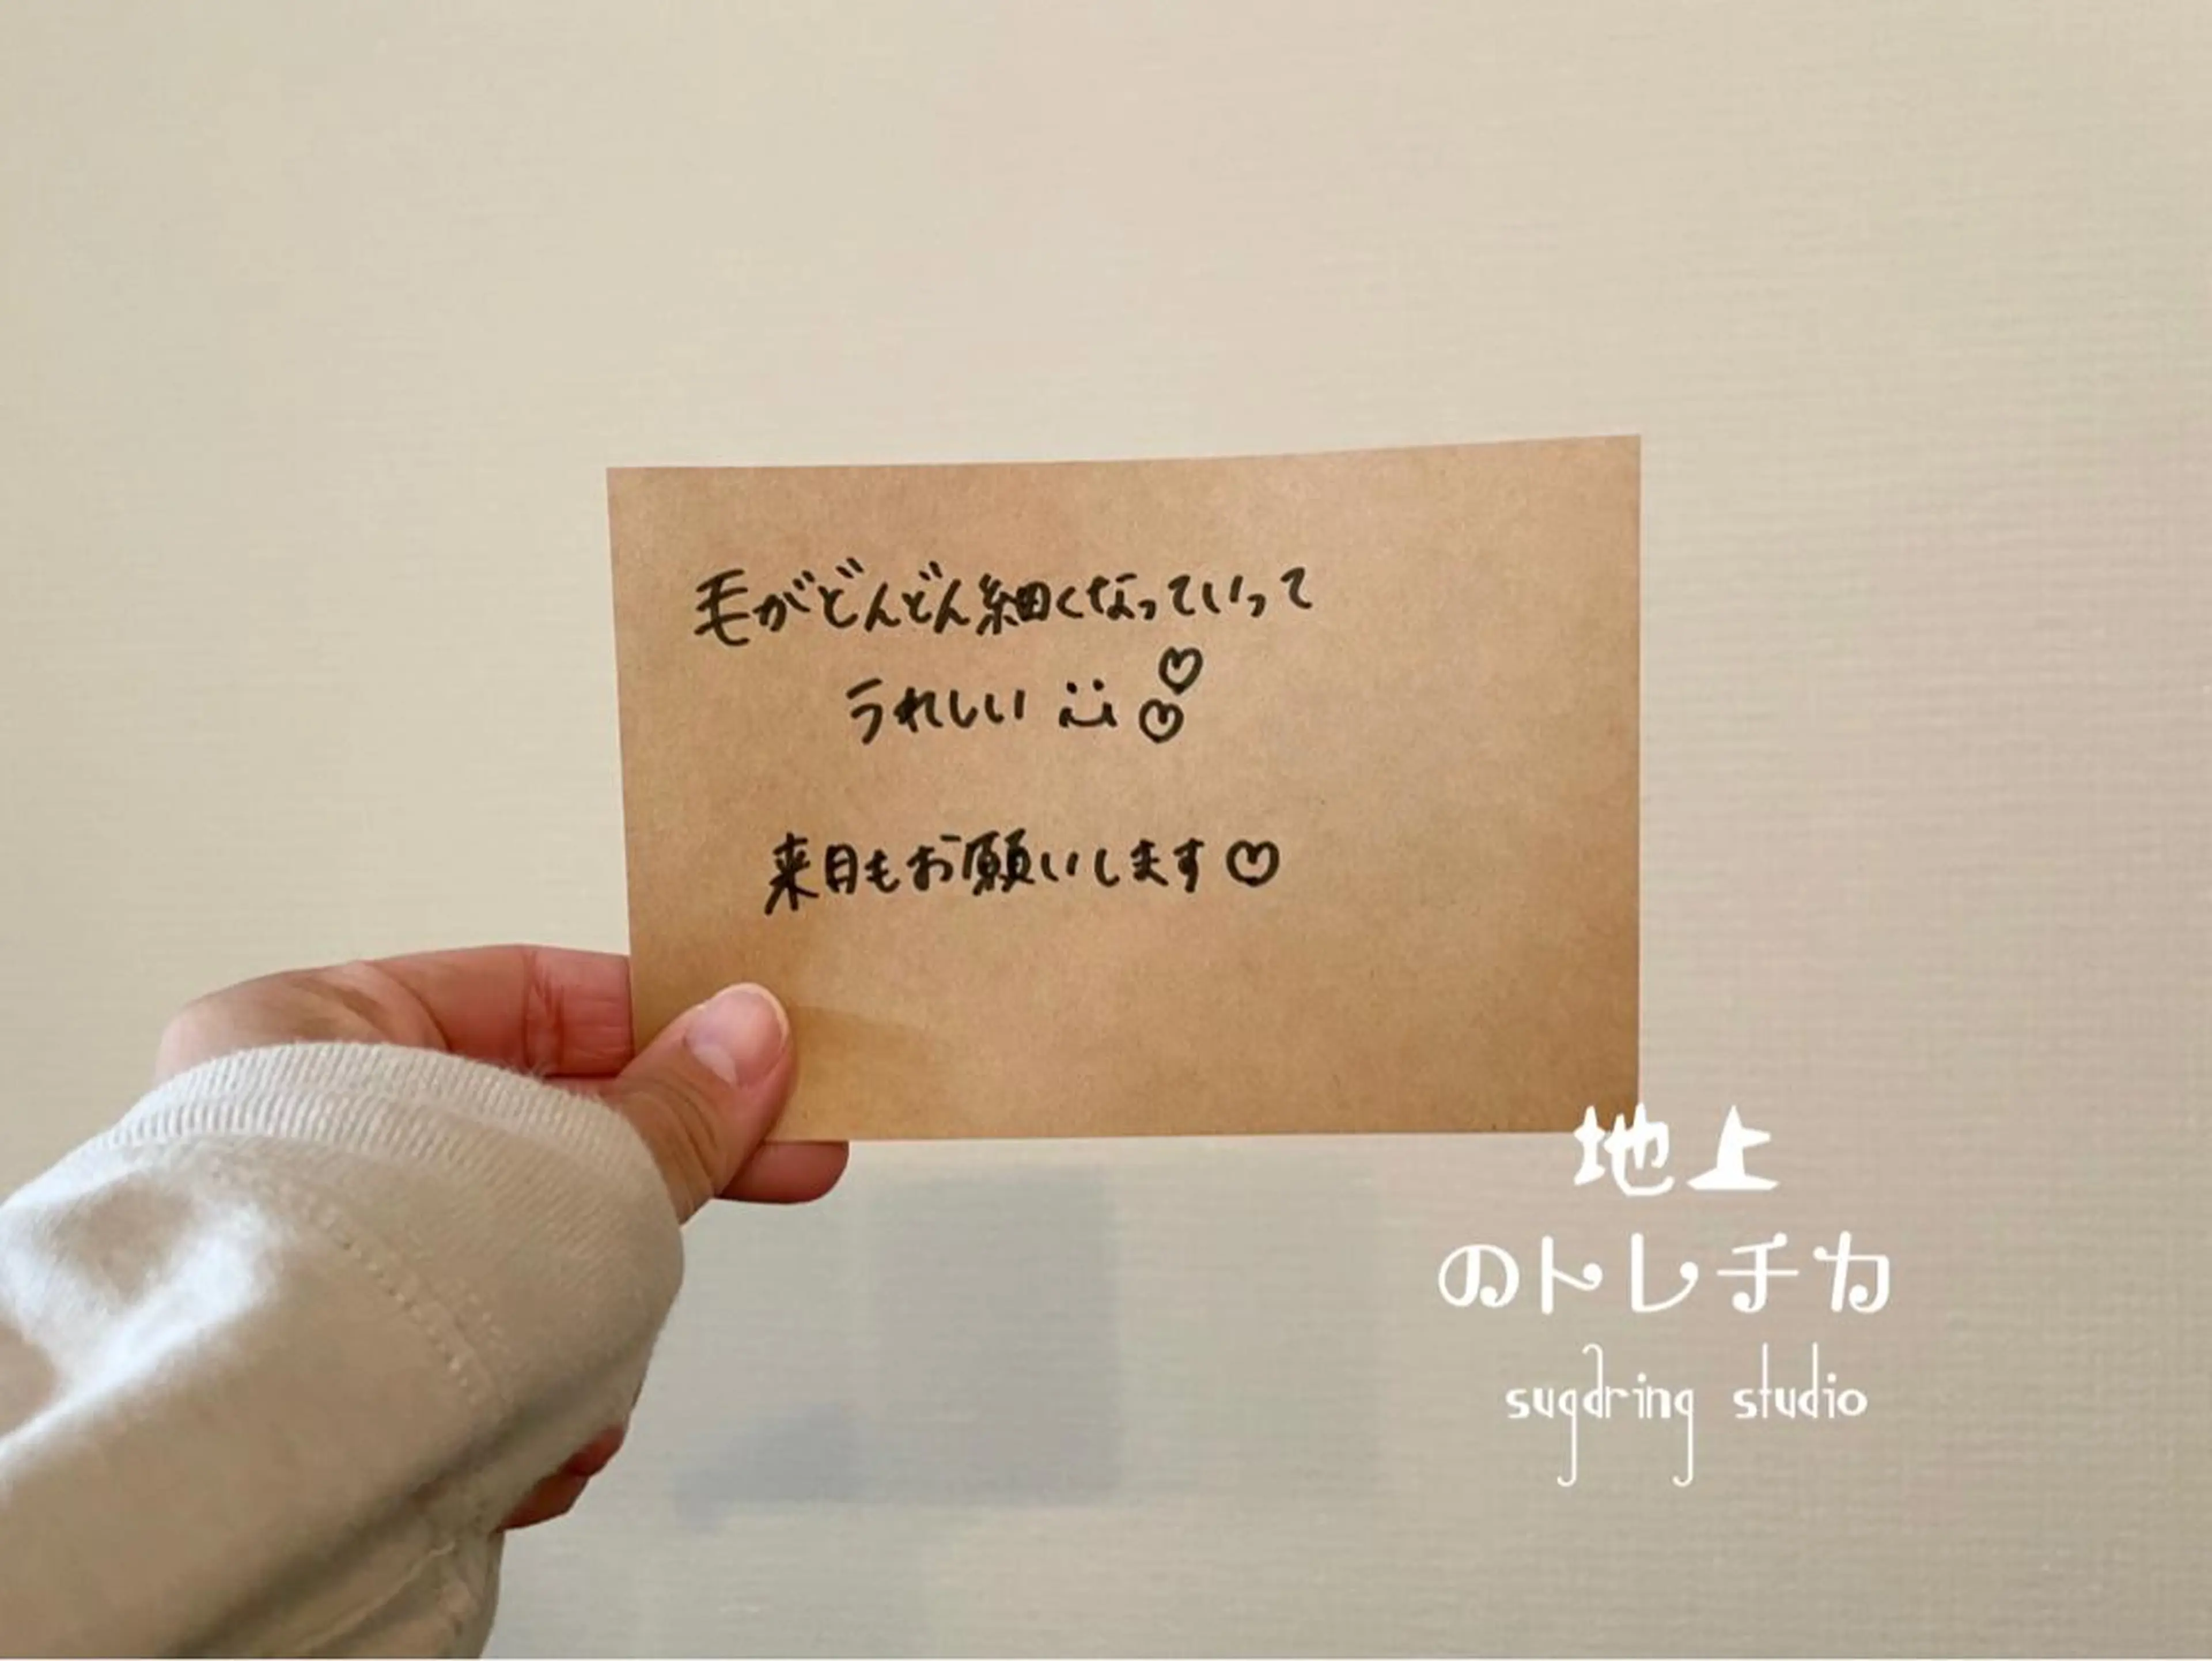 毛がどんどん細くなっていって
うれしい ♡
♡
来月もお願いします♡
地上
のトレチカ
sugdring studio